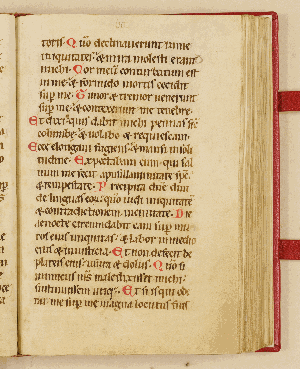 toris. Qm̄ declinauerunt in me
iniquitates: & in ira molesti erant
michi. Cor meū conturbatum est
in me: & formido mortis cecidit
sup me. Timor & tremor uenerunt
sup me: & contexerunt me tenebre.
Et dixi quis dabit michi pennas sic̄
columbe: & uolabo & requiescam.
Ecce elongaui fugiens: & mansi in soli
tudine. Expectabam eum qui sal
uum me fecit: a pusillanimitate sp̄s
& tempestate. Precipita dn̄e diui
de linguas eoꝝ: qm̄ uidi iniquitatē
& contradictionem in ciuitate. Die
ac nocte circumdabit eam sup mu
ros eius iniquitas: & labor in medio
eius & iniusticia. Et non defecit de
plateis eius: usura & dolus. Qm̄ si
inimicus ms̄ maledixisset michi:
sustinuissem utiqꝫ. Et si is qui ode
rat me sup me magna locutus fuis